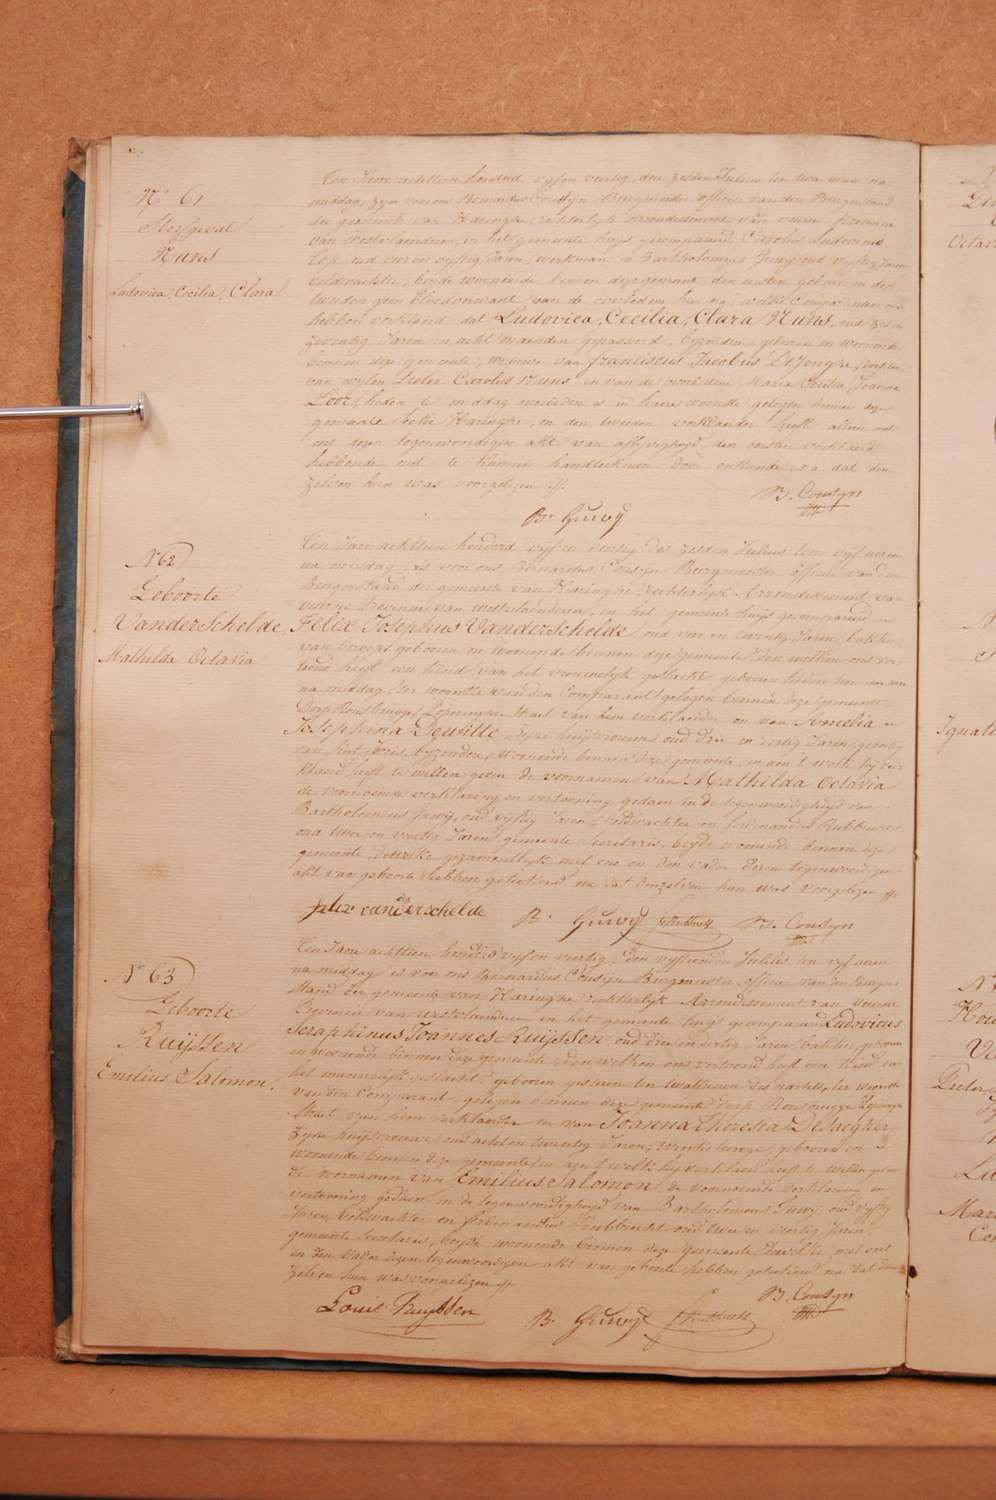 N° 61
Sterfgeval
Nuns
Ludovica, Cecilia, Clara
Ten Jare achttien honderd vyf en veertig, den zesden Julius ten twee uren na
middag, zyn voor ons Bernardus Cousyn Burgmeester officier van den Burgerstand
der gemeente van Haringhe, rechterlyk Arrondissement van veurne provincie
van Westvlaenderen, in het gemeente huys gecompareerd Carolus Ludovicus
oud vier en vyftig Jaren, werkman en Bartholomeus Guwy oud vyftig Jaren
veldwachter, beyde woonende binnen deze gemeente den eersten gebuer en den
tweeden geen bloedverwant van de overledene hier na; welke Comparanten ons
hebben verklaerd dat Ludovica, Cecilia, Clara Nuns, oud zes en
zeventig Jaren en acht maenden, byzondere, geboren en woonende
binnen deze gemeente, weduwe van Franciscus Jacobus DeJonghe, dochter
van wylen Pieter Carolus Nuns en van de overledene Maria Cecilia Joanna
Loot, heden te middag overleden is in haere woonste gelegen binnen deze
gemeente Sectie Haringhe, en den tweeden verklaerder heeft alleen met
ons dezen tegenwoordigen akt van afsterven den eersten verklaerd
hebbende niet te kunnen handteekenen door onkunde, na dat den
zelven hun was voorgelezen
B. Cousyn
B. Guwy
N 62
Geboorte
VanderSchelde
Mathilda Octavia
Ten Jare achttien honderd vyf en veertig des zesden Julius ten vyf uren
na middag, is voor ons Bernardus Cousyn Burgmeester officier van den
Burgerstand der gemeente van Haringhe, rechterlyk Arrondissement van
veurne Provincie van Westvlaenderen, in het gemeente huys gecompareerd
Felix Josephus VanderSchelde, oud vier en twintig Jaren, bakker
van beroep geboren en woonende binnen deze gemeente, den welken ons
heeft een kind van het vrouwelyk geslacht geboren heden ten een ure
na middag ter woonste van den Comparant gelegen binnen deze gemeente
Dorp Rousbrugge, Iperingstraet van hem verklaerder en van Amelia
Josephina Dewitte, zyne huysvrouwe, oud drie en dertig Jaren,
van Sint Joris, byzondere, woonende binnen deze gemeente, en aen 't welk hy ver-
klaerd heeft te willen geven de voornamen van Mathilda Octavia
de voornoemde verklaring en vertooning gedaen in de tegenwoordigheyd van
Bartholomeus Guwy, oud vyftig Jaren, veldwachter en ferdinandus Rubbrecht
oud twee en veertig Jaren, gemeente Secretaris, beyde woonende binnen deze
gemeente, dewelke gezamentlyk met ons en den vader dezen tegenwoordigen
akt van geboorte hebben geteekend na dat denzelven hun was voorgelezen
felix vanderschelde
B. Guwy
F Rubbrecht
B. Cousyn
N° 63
Geboorte
Ruÿssen
Emilius Salomon.
Ten Jare achttien honderd vyf en veertig, den vyftienden Julius ten vyf uren
na middag, is voor ons Bernardus Cousyn Burgemeester officier van den burger
stand der gemeente van Haringhe, rechterlyk Arrondissement van Veurne
Provincie van Westvlaenderen in het gemeente huys gecompareerd Ludovicus
Seraphinus Joannes Ruÿssen oud drie en dertig Jaren, bakker, geboren
en woonende binnen deze gemeente, den welken ons vertoond heeft een kind van
het mannelyk geslacht, geboren gisteren ten twaelf uren des nachts, ter woonste
van den Comparant, gelegen binnen deze gemeente dorp Rousbrugge Ipering-
straet van hem verklaerder en van Joanna Theresia DeJaegher
zyne huysvrouwe, oud acht en twintig Jaren, zonder beroep, geboren en
woonende binnen deze gemeente, en aen 't welk hy verklaerd heeft te willen geven
de voornamen van Emilius Salomon, de voornoemde verklaring en
vertooning gedaen in de tegenwoordigheyd van Bartholomeus Guwy, oud vyftig
Jaren, veldwachter en ferdinandus Rubbrecht oud twee en veertig Jaren,
gemeente Secretaris, beyde woonende binnen deze gemeente, dewelke met ons
en den vader dezen tegenwoordigen akt van geboorte hebben geteekend na dat den-
zelven hun was voorgelezen
B. Cousyn
Louis Ruyssen
B. Guwy
F Rubbrecht